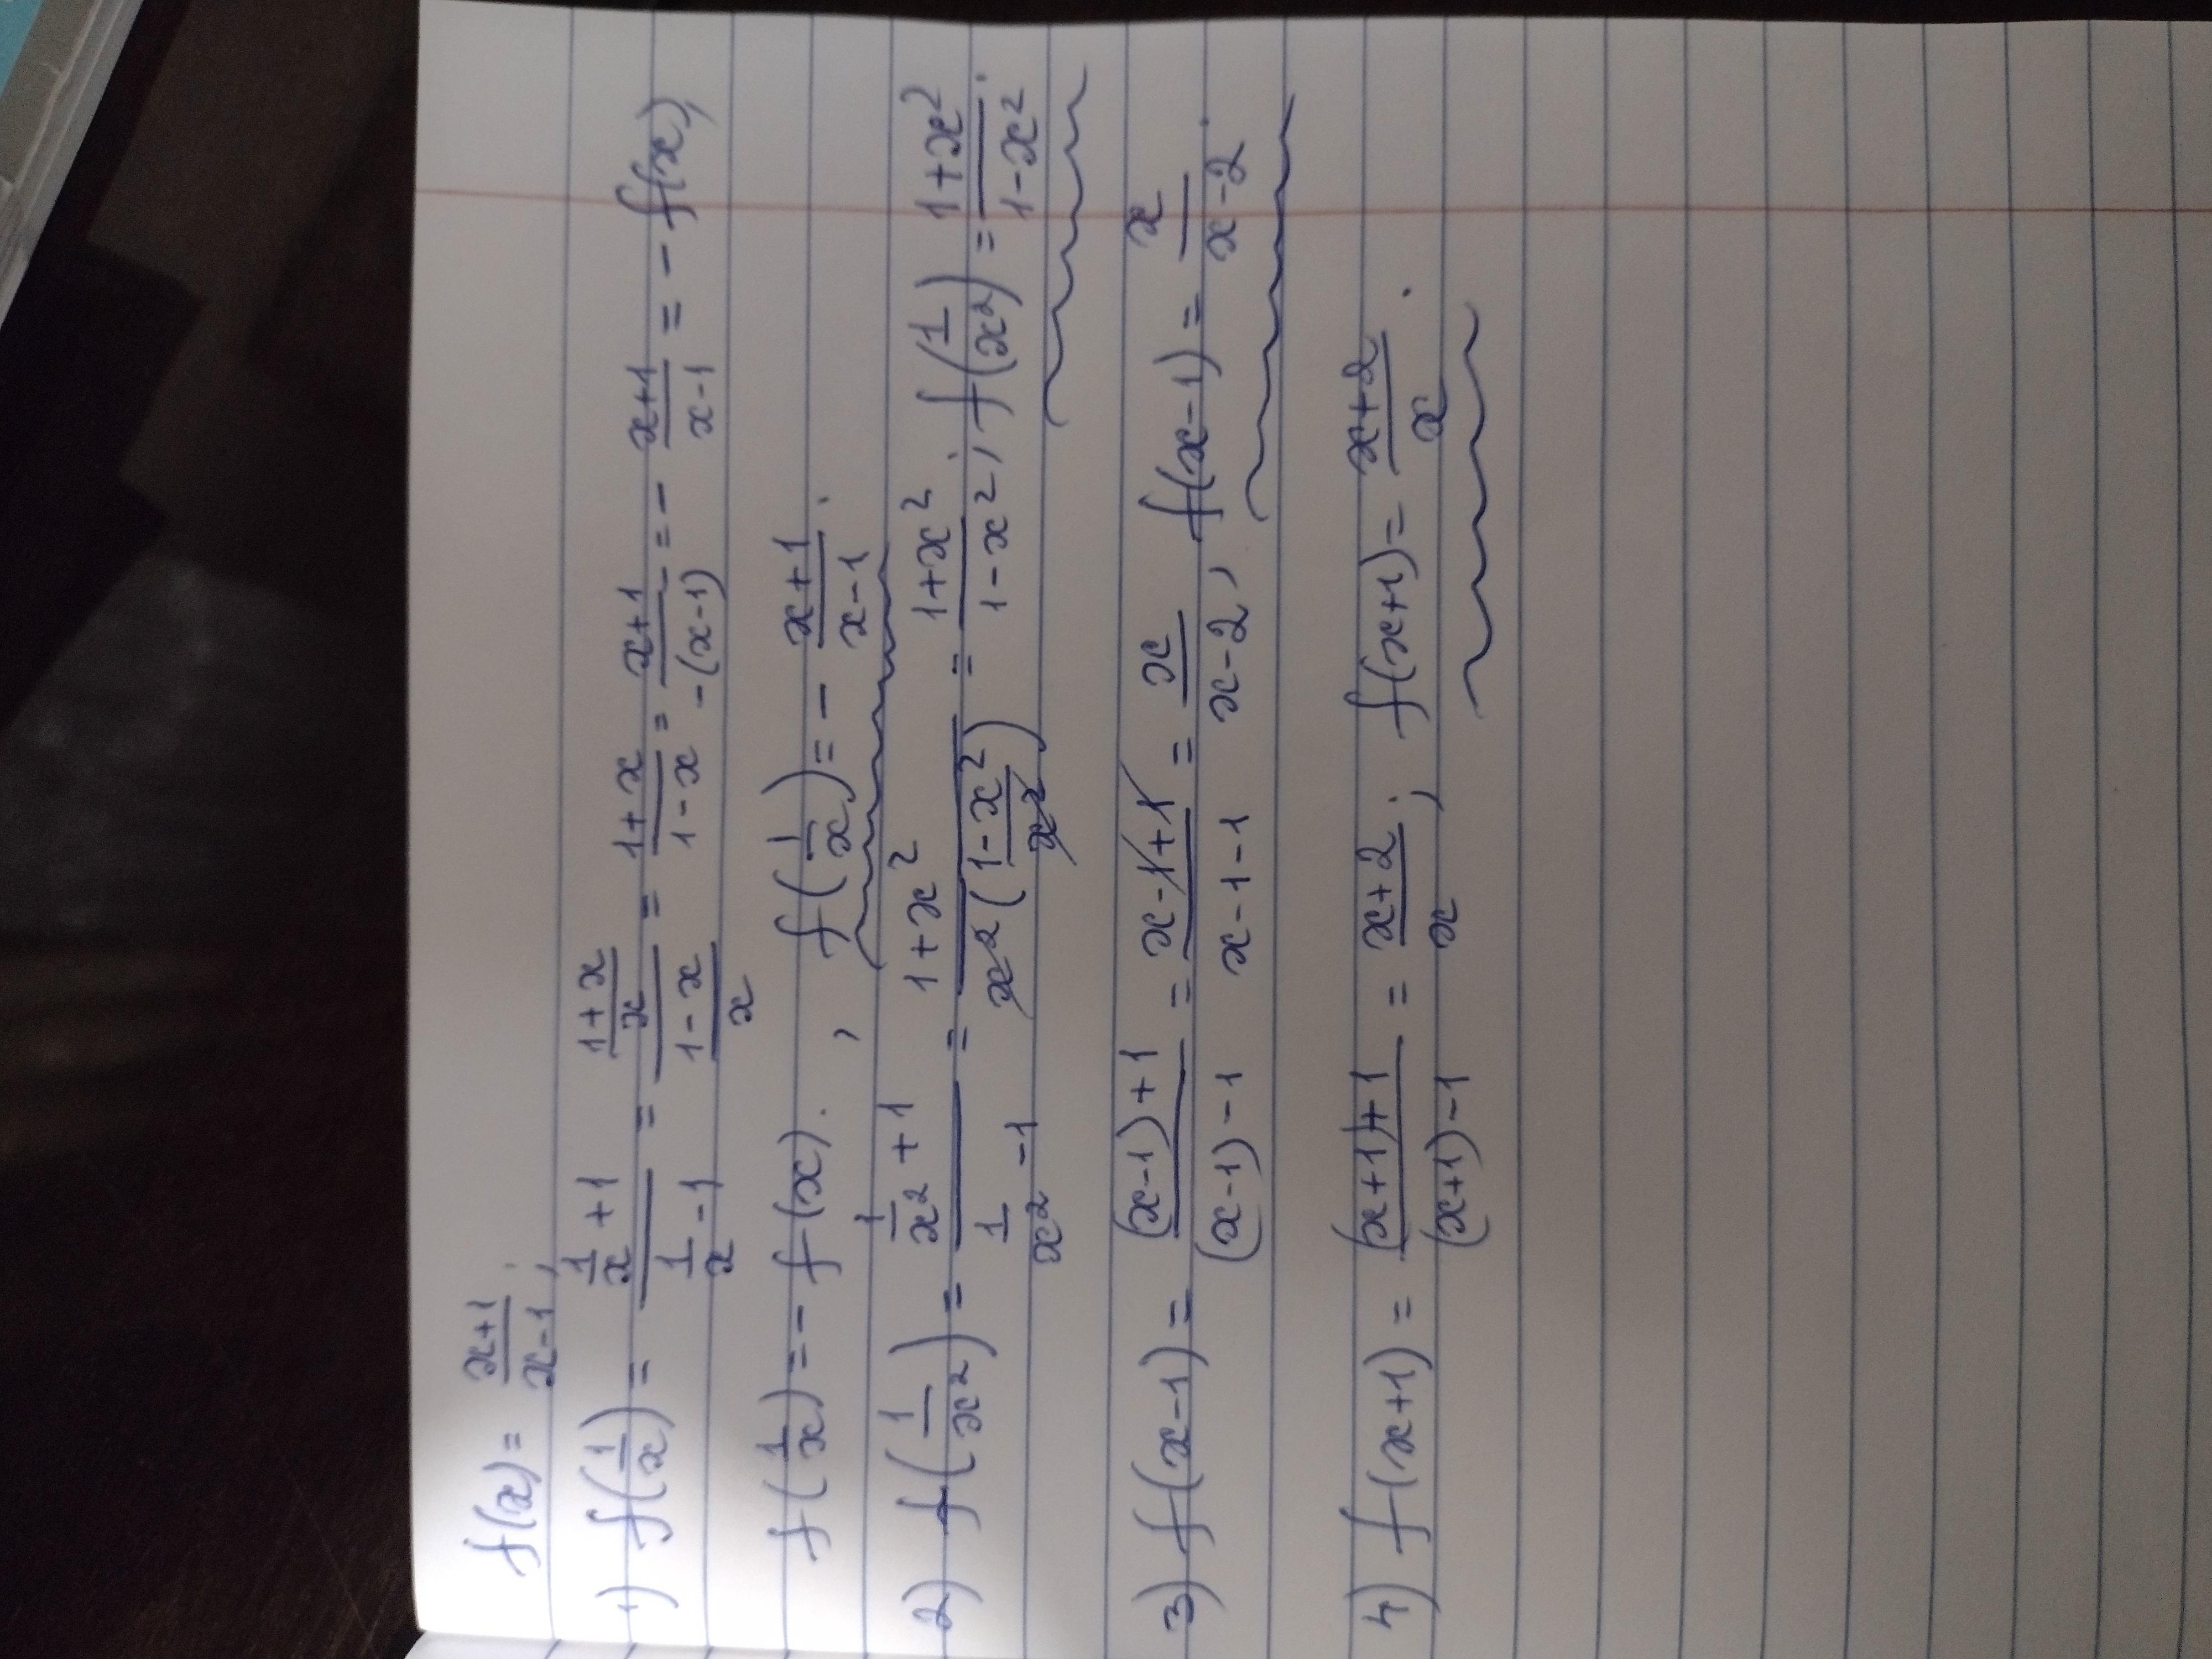 f(x) = \frac{x+1}{x-1};
1) f(\frac{1}{x}) = \frac{\frac{1}{x}+1}{\frac{1}{x}-1} = \frac{\frac{1+x}{x}}{\frac{1-x}{x}} = \frac{1+x}{1-x} = \frac{x+1}{-(x-1)} = - \frac{x+1}{x-1} = - f(x),
f(\frac{1}{x}) = - f(x). , f(\frac{1}{x}) = - \frac{x+1}{x-1}.
2) f(\frac{1}{x^2}) = \frac{\frac{1}{x^2}+1}{\frac{1}{x^2}-1} = \frac{1+x^2}{x^2(\frac{1-x^2}{x^2})} = \frac{1+x^2}{1-x^2}; f(\frac{1}{x^2}) = \frac{1+x^2}{1-x^2}.
3) f(x-1) = \frac{(x-1)+1}{(x-1)-1} = \frac{x-1+1}{x-1-1} = \frac{x}{x-2}, f(x-1) = \frac{x}{x-2}.
4) f(x+1) = \frac{(x+1)+1}{(x+1)-1} = \frac{x+2}{x}; f(x+1) = \frac{x+2}{x}.